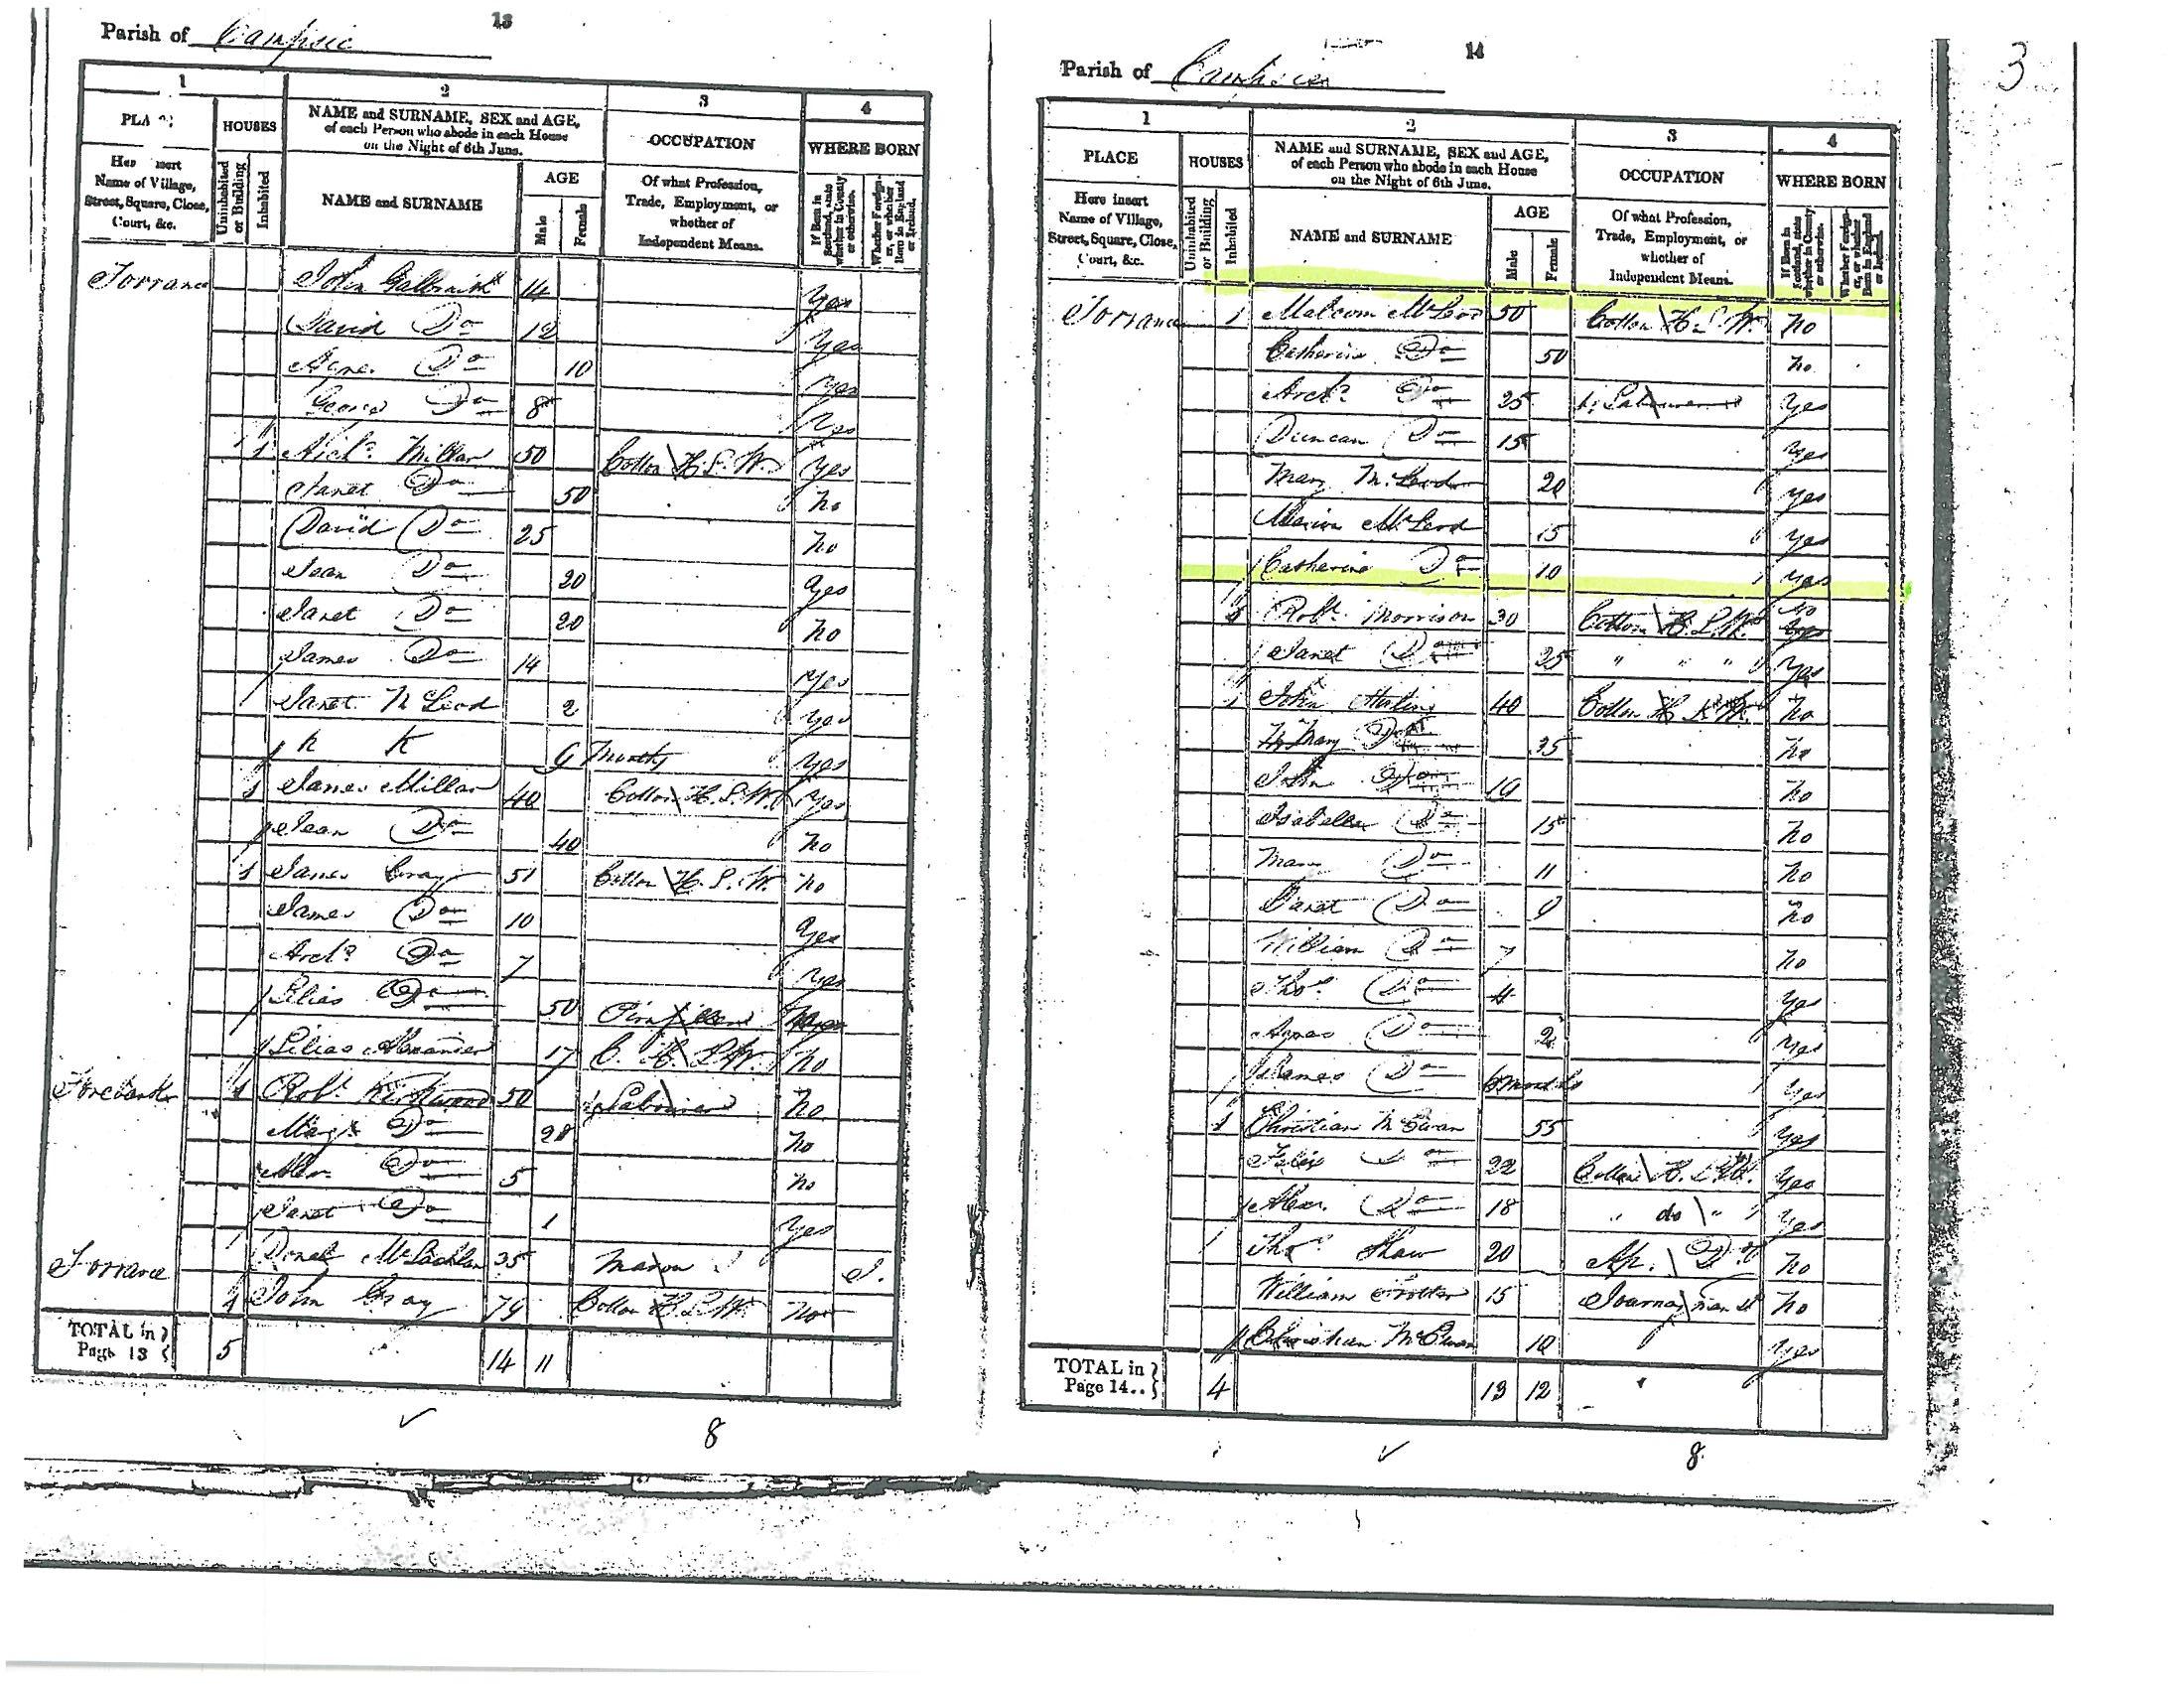 13
Parish of Campsie
1 2 3 4
PLA
HOUSES
NAME and SURNAME, SEX and AGE, of each Person who abode in each House on the Night of 6th June.
OCCUPATION
WHERE BORN
Name of Village, Street, Square, Close, Court, &c.
Uninhabited or Building
Inhabited
NAME and SURNAME
AGE
Male
Female
Of what Profession, Trade, Employment, or whether of Independent Means.
If Born in Scotland, state whether in County or otherwise.
Whether Foreigner, or whether Born in England or Ireland.
Torrance John Galbraith 14 Yes
David Do 12 Yes
Agnes Do 10 Yes
George Do 8 Yes
1 Millar 50 Cotton H. L. W. Yes
Janet Do 50 no
David Do 25 no
Jean Do 20 Yes
Janet Do 20 no
James Do 14 Yes
Janet McLeod 2 Yes
months Yes
1 James Millar 40 Cotton H. L. W. Yes
Jean Do 40 no
1 James Gray 51 Cotton H. L. W. no
James Do 10 Yes
Archd Do 7 Yes
Lilias Do 50
Lilias Alexander 17 C. H. L. W. no
1 Robt Kirkwood 50 Labourer no
Do 28 no
Alexr. Do 5 no
Janet Do 1 Yes
McLachlan 35 Mason I.
Torrance 1 John Gray 74 Cotton H. L. W. no
TOTAL in Page 13 5 14 11
8
14
3
Parish of Campsie
1 2 3 4
PLACE
HOUSES
NAME and SURNAME, SEX and AGE, of each Person who abode in each House on the Night of 6th June.
OCCUPATION
WHERE BORN
Here insert Name of Village, Street, Square, Close, Court, &c.
Uninhabited or Building
Inhabited
NAME and SURNAME
AGE
Male
Female
Of what Profession, Trade, Employment, or whether of Independent Means.
If Born in Scotland, state whether in County or otherwise.
Whether Foreigner, or whether Born in England or Ireland.
Torrance 1 Malcom McLeod 50 Cotton H. L. W. no
Catherine Do 50 no
Archd Do 25 Labourer Yes
Duncan Do 15 Yes
Mary McLeod 20 Yes
Marion McLeod 15 Yes
Catherine Do 10 Yes
1 Robt Morrison 30 Cotton H. L. W. no
Janet Do 25 " " " Yes
1 John 40 Cotton H. L. W. no
Mary Do 35 no
John Do no
Isabella Do 15 no
Mary Do 11 no
Janet Do 9 no
William Do 7 no
Thos. Do 4 Yes
Agnes Do 2 Yes
James Do 6 months Yes
1 Christian McEwan 55 Yes
Do 22 Cotton H. L. W. Yes
Alexr. Do 18 " do " Yes
Thos. Shaw 20 Ap. Do no
William 15 Journeyman no
Christian McEwan 10 Yes
TOTAL in Page 14.. 4 13 12
8